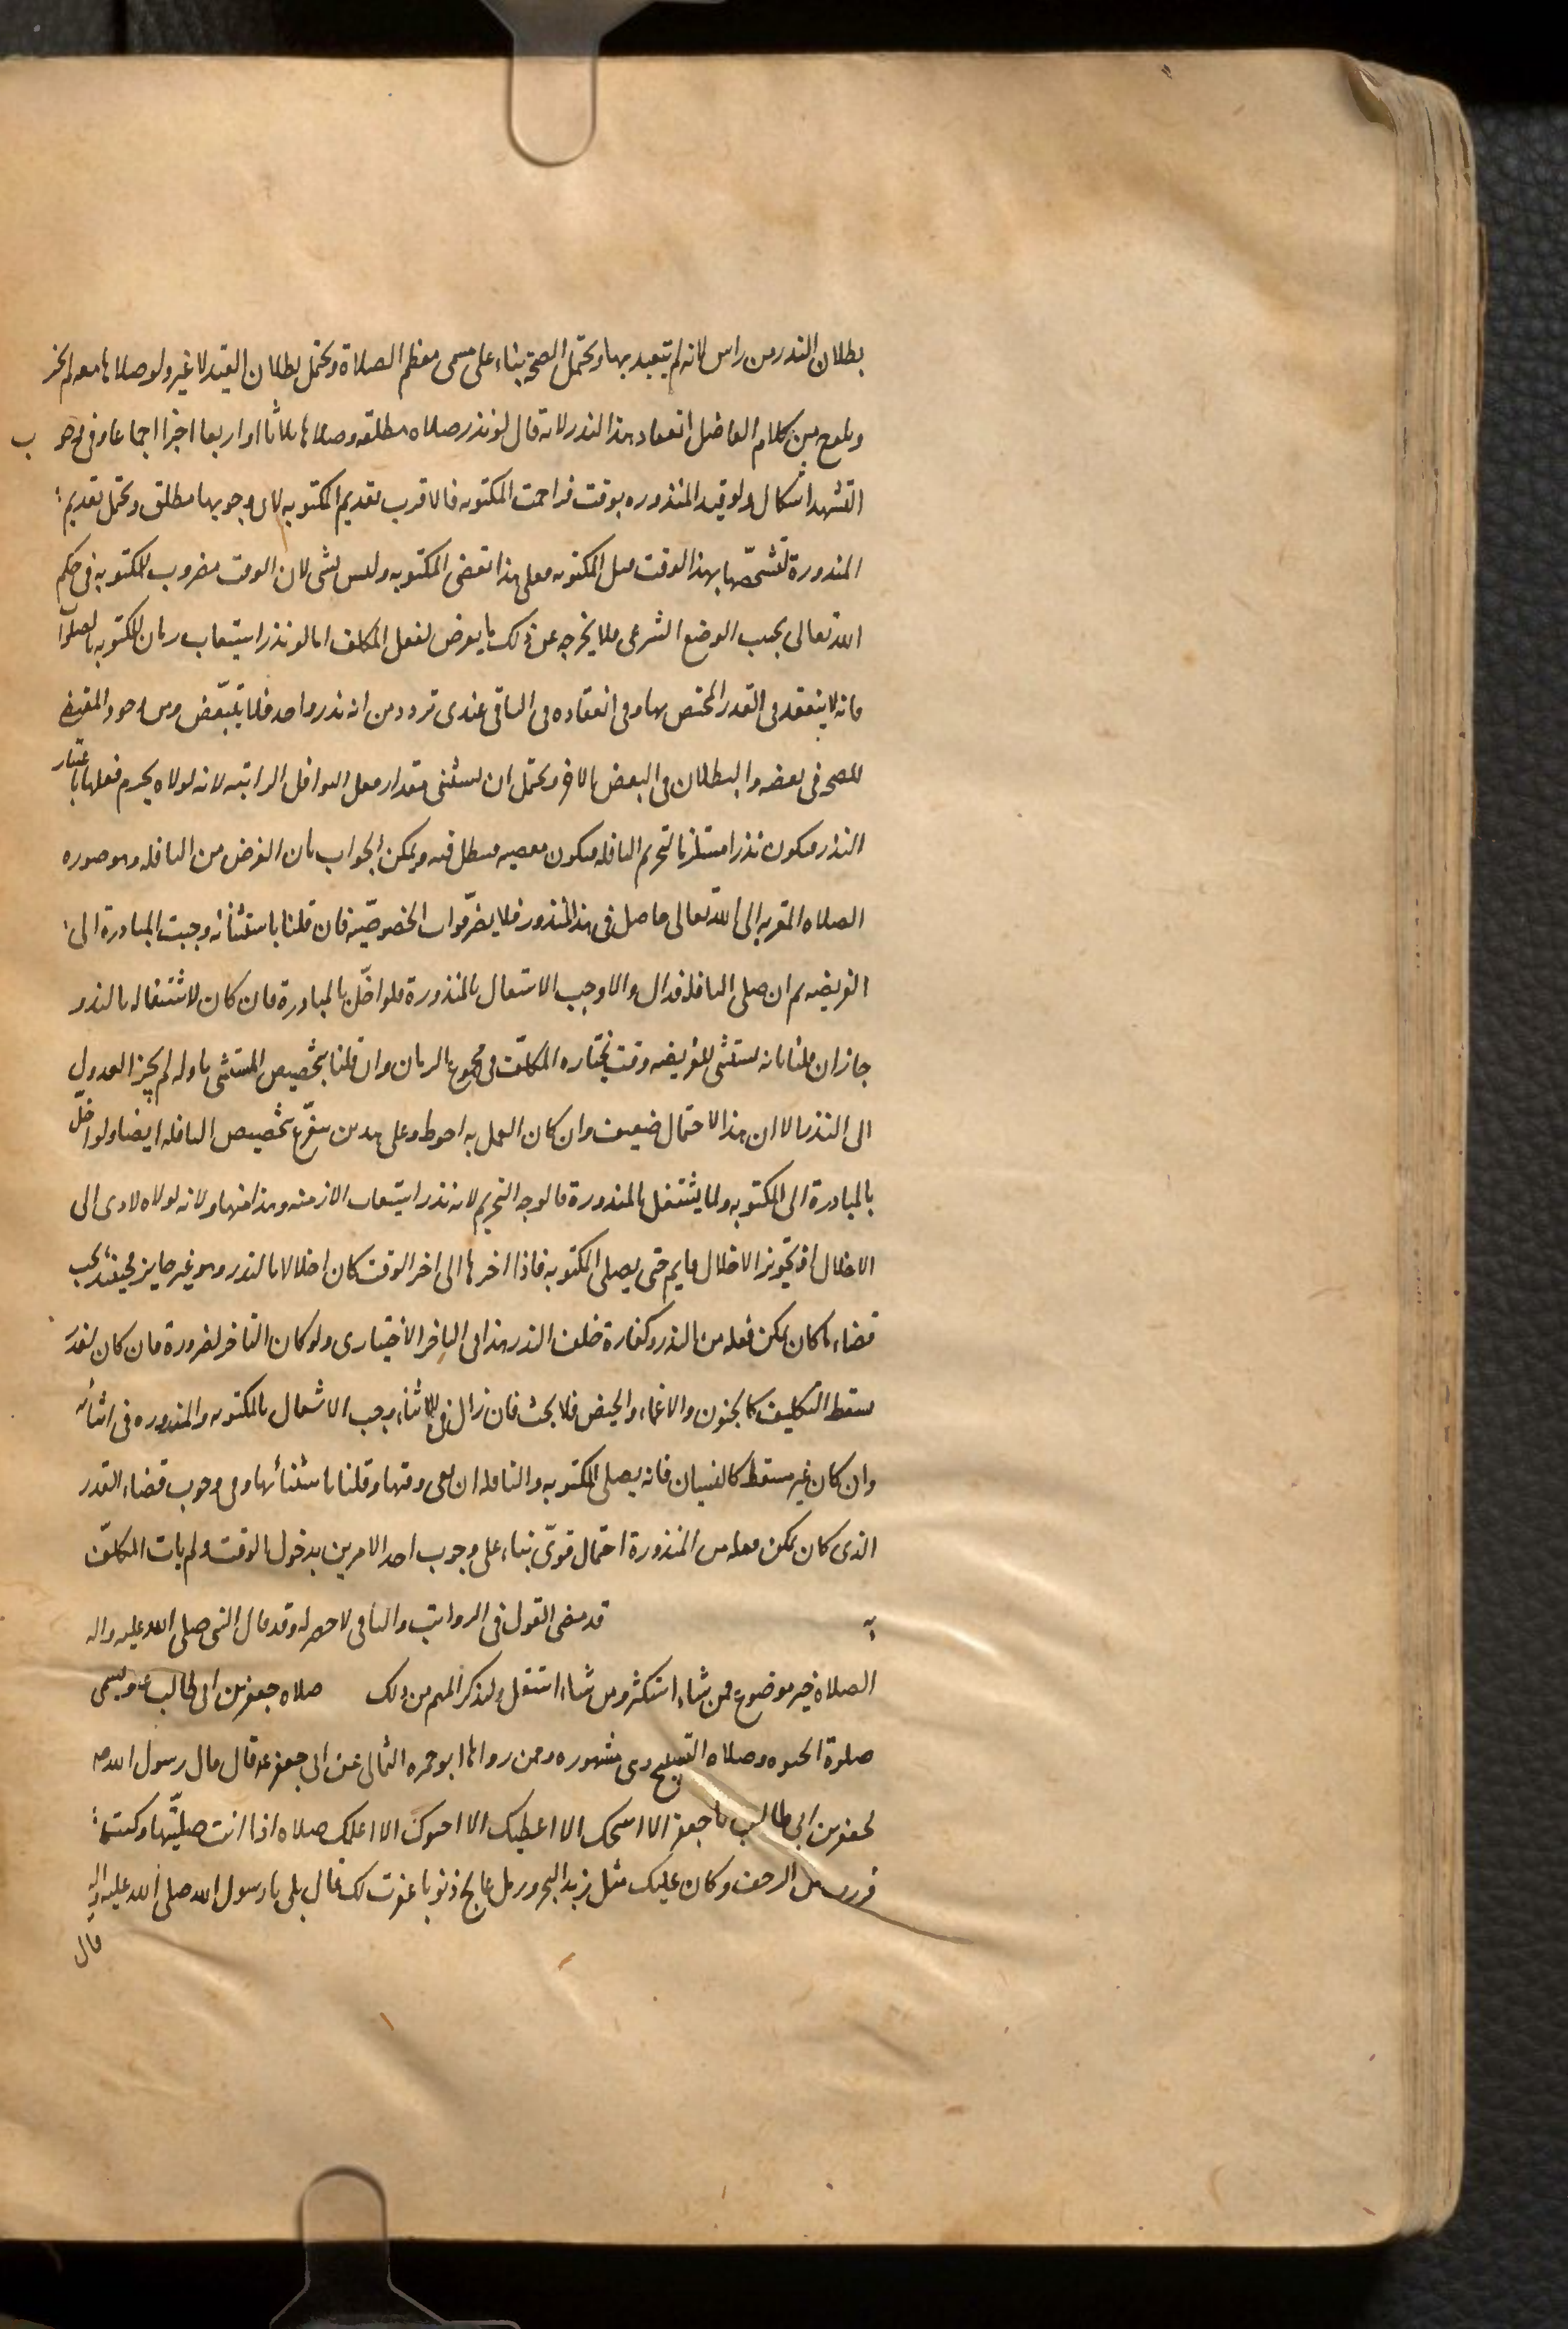 بطلان النذر من راس لانه لم يتعبد بها ويحتمل الصحة بناء على مسمى معظم الصلاة ويحتمل بطلان القيد لا غير ولو صلاها معه لم يجز
ويلوح من كلام الفاضل انعقاد هذا النذر لانه قال لو نذر صلاه مطلقه وصلاها ثلاثا او اربعا اجزا اجماعا وفى وجوب
التشهد اشكال ولو قيد المنذوره بوقت فزاحمت المكتوبه فالاقرب تقديم المكتوبه لان وجوبها مطلق ويحتمل تقديم
المنذورة لتشخّصها بهذا الوقت مثل المكتوبه فعلى هذا تقضى المكتوبه وليس بشى لان الوقت مضروب للمكتوبه فى حكم
الله تعالى بحسب الوضع الشرعى فلا يخرجه عن ذلك ما يعرض لفعل المكلف اما لو نذر استيعاب زمان المكتوبه بالصلوة
فانه لا ينعقد فى القدر المختص بها وفى انعقاده فى الباقى عندى تردد من انه نذر واحد فلا يتبعّض ومن وجود المقتضى
للصحه فى بعضه والبطلان فى البعض الاخر ويحتمل ان يستثنى مقدار فعل النوافل الراتبه لانه لولاه يحرم فعلها باعتبار
النذر فيكون نذرا مستلزما لتحريم النافله فيكون معصيه فيبطل فيه ويمكن الجواب بان الغرض من النافله وهو صوره
الصلاه المقربه الى الله تعالى حاصل فى هذا المنذور فلا يضرّ فوات الخصوصيّه فان قلنا باستثنائه وجبت المبادرة الى
الفريضه ثم ان صلى النافله فذاك والا وجب الاشتغال بالمنذورة فلو اخلّ بالمبادرة فان كان لاشتغاله بالنذر
جاز ان قلنا بانه يستثنى للفريضه وقت يختاره المكلّف فى مجموع الزمان وان قلنا بتخصيص المستثنى باوله لم يجز العدول
الى النذر الا ان هذا الاحتمال ضعيف وان كان العمل به احوط وعلى هذين يتفرّع تخصيص النافله ايضا ولو اخلّ
بالمبادرة الى المكتوبه ولما يشتغل بالمنذورة فالوجه التحريم لانه نذر استيعاب الازمنه وهذا منها ولانه لولاه لادى الى
الاخلال اذ تجويز الاخلال قايم حتى يصلى المكتوبه فاذا اخرها الى اخر الوقت كان اخلالا بالنذر وهو غير جايز فحينئذ يجب
قضاء ما كان يمكن فعله من النذر وكفارة خلف النذر هذا فى التاخير الاختيارى ولو كان التاخر لضرورة فان كان لعذر
مسقط التكليف كالجنون والاغماء والحيض فلا بحث فان زال فى الاثناء وجب الاشتغال بالمكتوبه والمنذوره فى اثنائه
وان كان غير مسقط كالنسيان فانه يصلى المكتوبه والنافله ان بقى وقتها وقلنا باستثنائها وفى وجوب قضاء القدر
الذى كان يمكن فعله من المنذورة احتمال قوىّ بناء على وجوب احد الامرين بدخول الوقت ولم يات المكلّف
به قد مضى القول فى الرواتب والباقى لا حصر له وقد قال النبى صلى الله عليه واله
الصلاه خير موضوع فمن شاء استكثر ومن شاء استقل ولنذكر المهم من ذلك صلاه جعفر بن ابى طالب ع وتسمى
صلوة الحبوه وصلاه التسبيح وهى مشهوره وممن رواها ابو حمزه الثمالى عن ابى جعفر ع قال قال رسول الله ص
لجعفر بن ابى طالب يا جعفر الا امنحك الا اعطيك الا احبوك الا اعلمك صلاه اذا انت صليتها وكنت
فررت من الزحف وكان عليك مثل زبد البحر ورمل عالج ذنوبا غفرت لك قال بلى يا رسول الله صلى الله عليه واله
قال